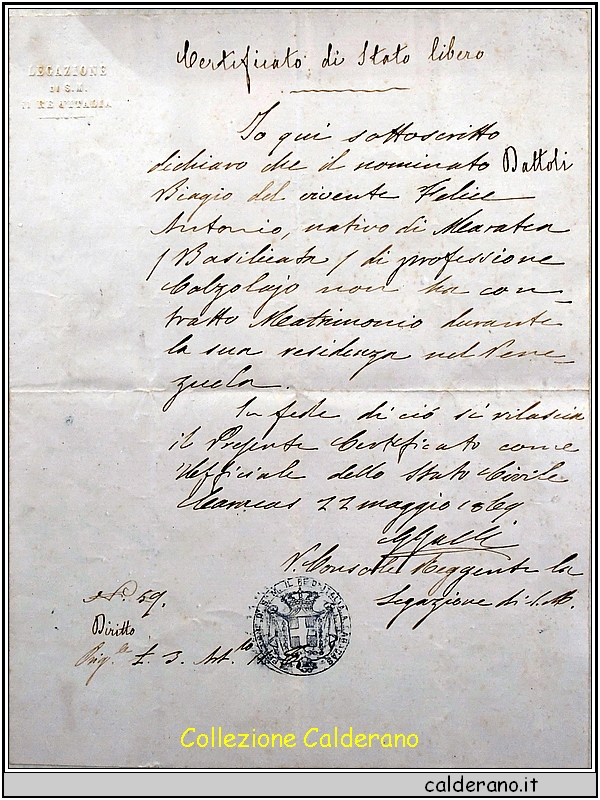 LEGAZIONE
DI S.M.
IL RE D'ITALIA
Certificato di Stato libero
Io qui sottoscritto
dichiaro che il nominato Battoli
Biagio del vivente Felice
Antonio, nativo di Maratea
/ Basilicata / di professione
Calzolajo non ha con_
tratto Matrimonio durante
la sua residenza nel Vene_
zuela.
In fede di ciò si rilascia
il Presente Certificato come
Uffiziale dello Stato Civile
Caracas 22 maggio 1869
GGalli
V. Console Reggente la
Legazione di S.M.
N.º 59.
Diritto
L. 3. Art.to
S.M. IL RE D'ITALIA A CARACAS
Collezione Calderano
calderano.it